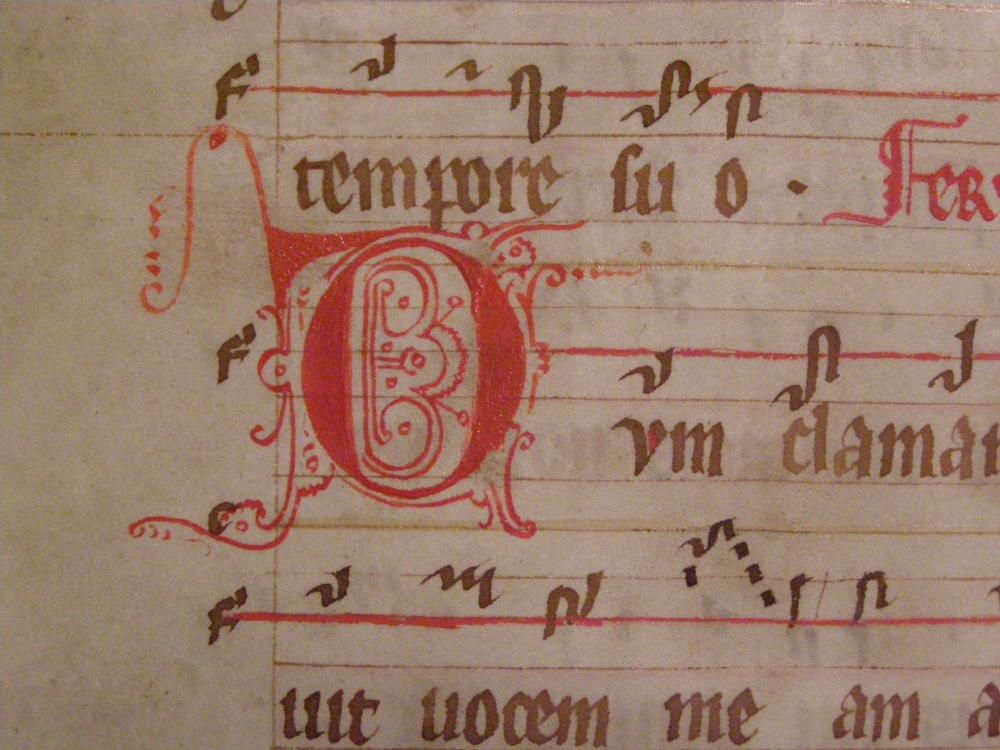 tempore su o · Fer
Dvm clamar
uit uocem me am a